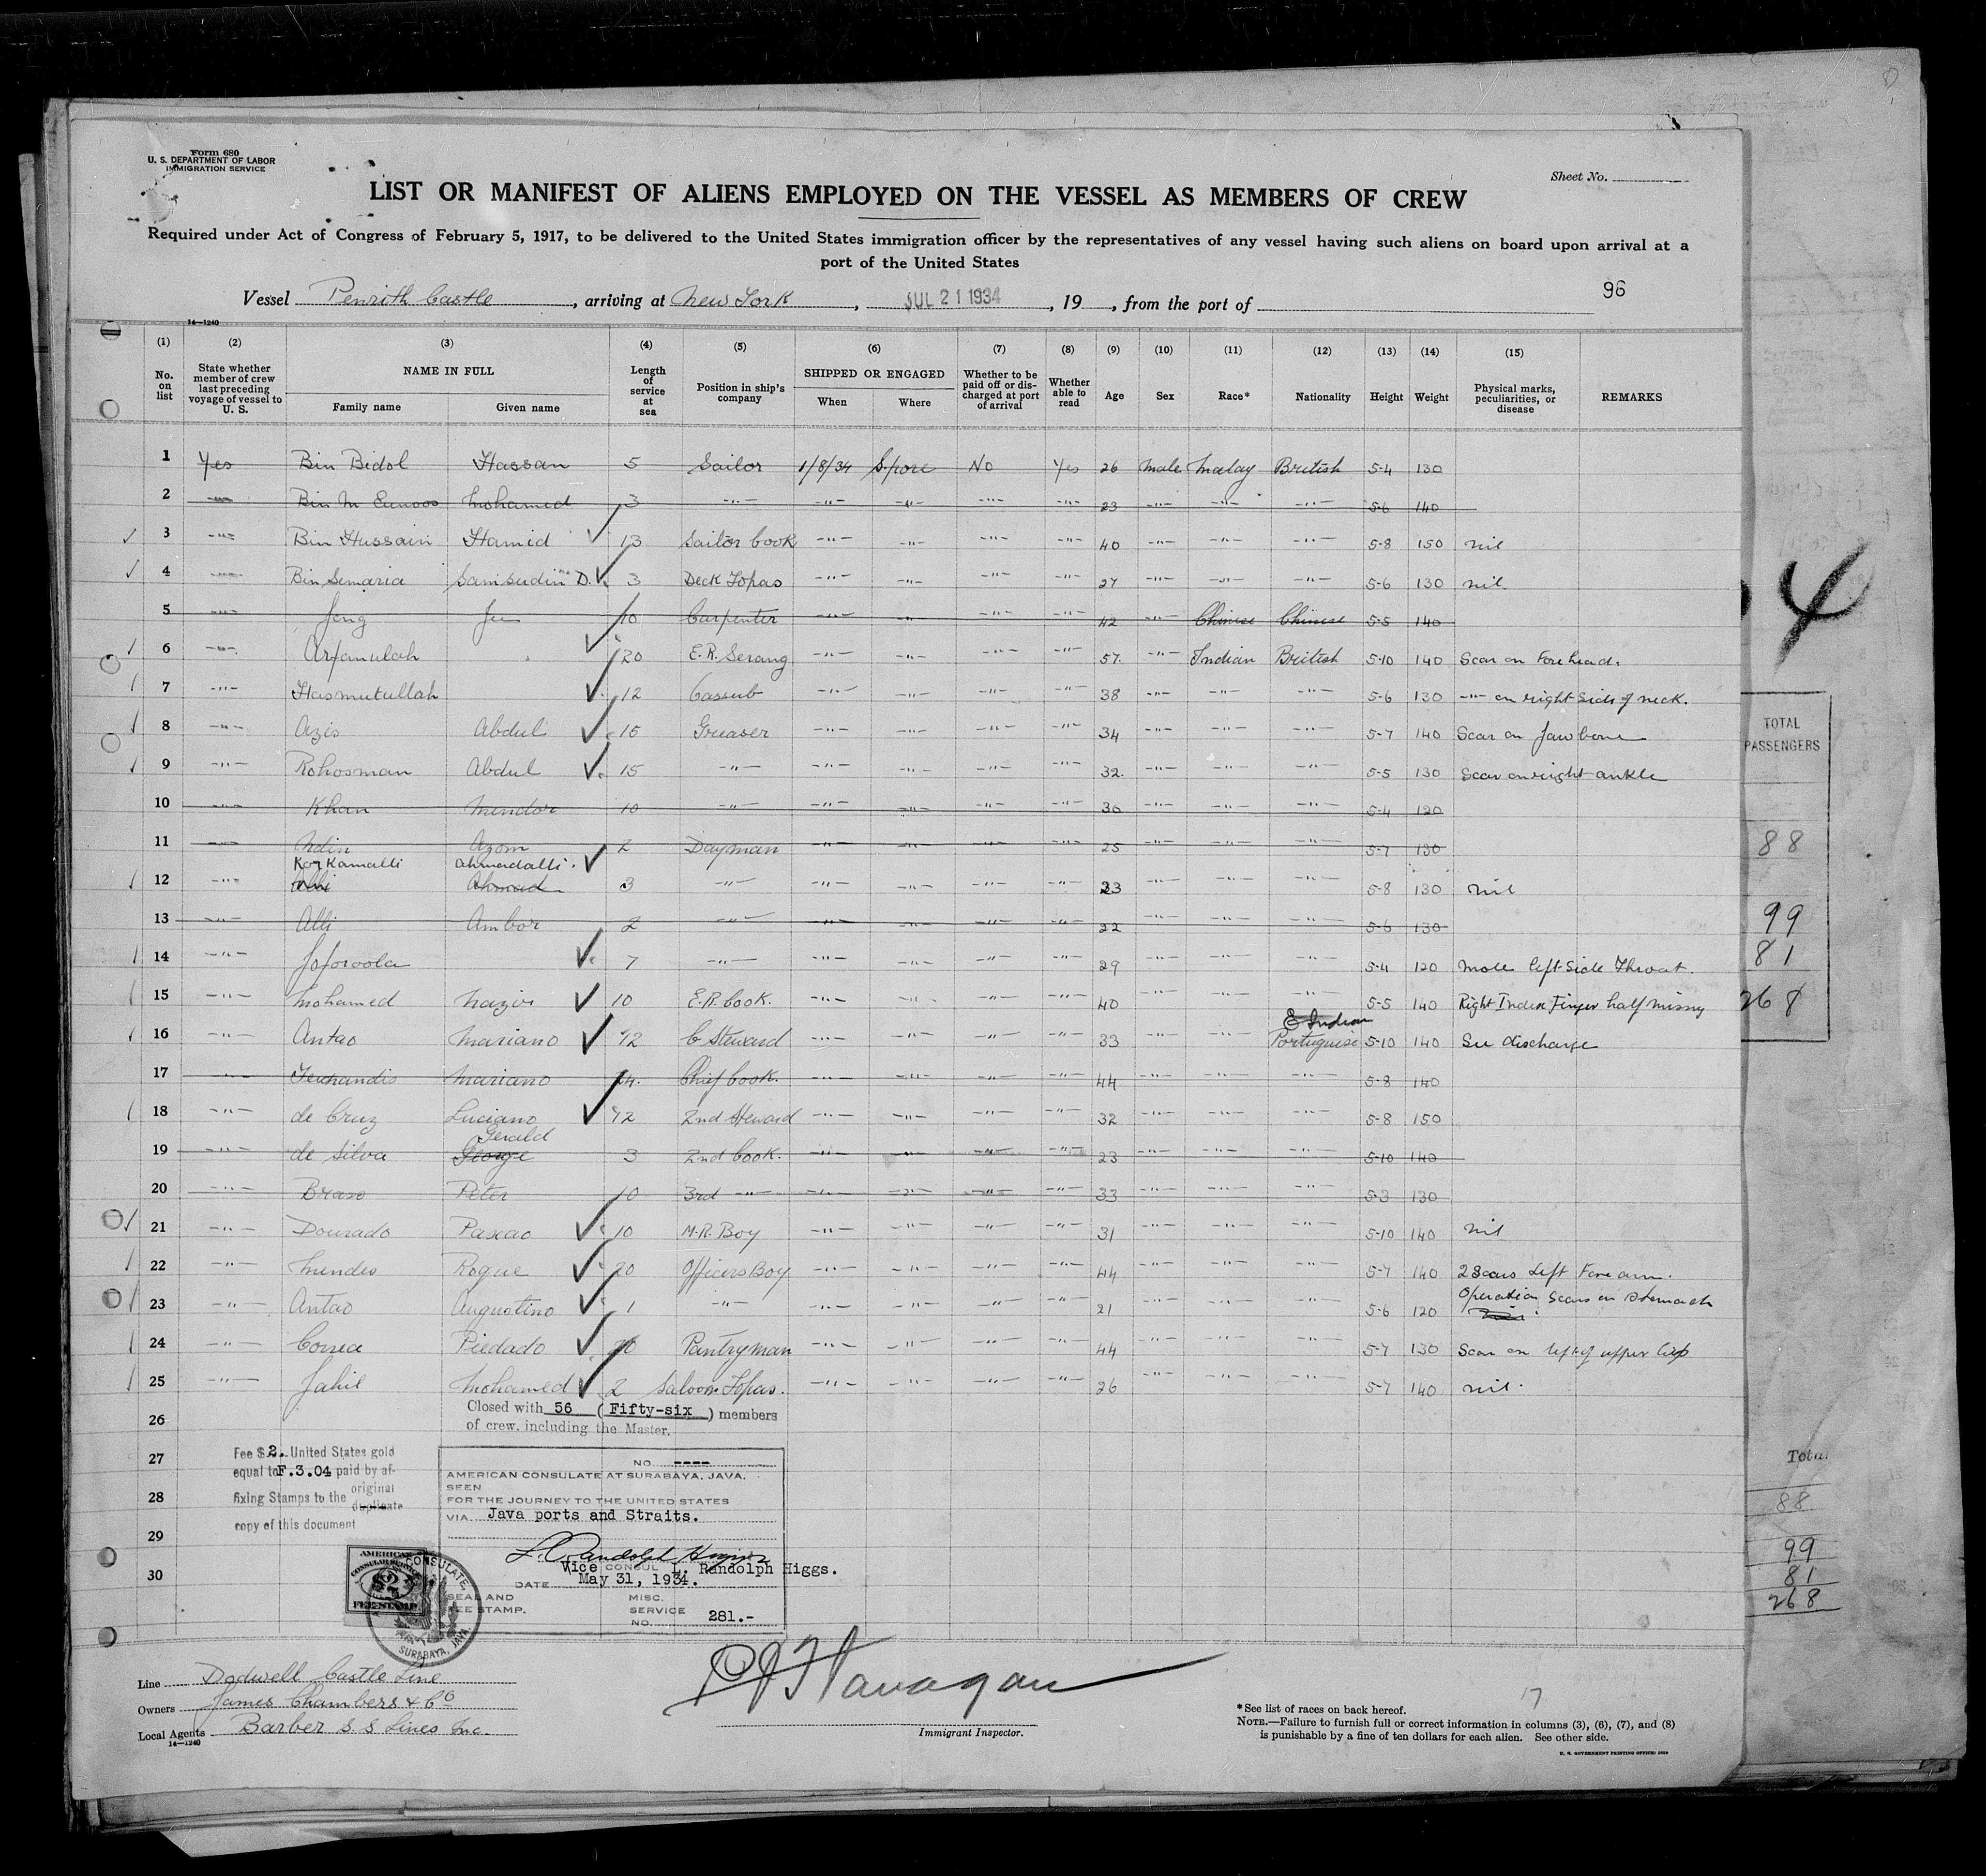 Form 680
U. S. DEPARTMENT OF LABOR
IMMIGRATION SERVICE
Sheet No.
LIST OR MANIFEST OF ALIENS EMPLOYED ON THE VESSEL AS MEMBERS OF CREW
Required under Act of Congress of February 5, 1917, to be delivered to the United States immigration officer by the representatives of any vessel having such aliens on board upon arrival at a
port of the United States
Vessel Penrith Castle, arriving at New York, JUL 21 1934, 19, from the port of
96
14—1240
(1) (2) (3) (4) (5) (6) (7) (8) (9) (10) (11) (12) (13) (14) (15)
No. on list
State whether member of crew last preceding voyage of vessel to U. S.
NAME IN FULL
Family name
Given name
Length of service at sea
Position in ship's company
SHIPPED OR ENGAGED
When
Where
Whether to be paid off or discharged at port of arrival
Whether able to read
Age
Sex
Race*
Nationality
Height
Weight
Physical marks, peculiarities, or disease
REMARKS
1 Yes Bin Bidol Hassan 5 Sailor 1/8/34 S.pore No Yes 26 Male Malay British 5-4 130
2 -"- Bin M Eunoos Mohamed 3 -"- -"- -"- -"- -"- 23 -"- -"- -"- 5-6 140
3 -"- Bin Hussain Hamid 13 Sailor Cook -"- -"- -"- -"- 40 -"- -"- -"- 5-8 150 nil
4 -"- Bin Semaria Samsudin D. 3 Deck Topas -"- -"- -"- -"- 27 -"- -"- -"- 5-6 130 nil
5 -"- Jong 10 Carpenter -"- -"- -"- -"- 42 -"- Chinese Chinese 5-5 140
6 -"- Arfanulah 20 E.R. Serang -"- -"- -"- -"- 57. -"- Indian British 5-10 140 Scar on Forehead.
7 -"- Hasmutullah 12 Cassub -"- -"- -"- -"- 38 -"- -"- -"- 5-6 130 -"- on right side of neck.
8 -"- Azis Abdul 15 Greaser -"- -"- -"- -"- 34 -"- -"- -"- 5-7 140 Scar on Jaw bone
9 -"- Rohosman Abdul 15 -"- -"- -"- -"- -"- 32. -"- -"- -"- 5-5 130 Scar on right ankle
10 -"- Khan 10 -"- -"- -"- -"- -"- 36 -"- -"- -"- 5-4 120
11 -"- Azom 2 Dayman -"- -"- -"- -"- 25 -"- -"- -"- 5-7 130
Kamalli Ahmadalli.
12 -"- Alli Ahmad 3 -"- -"- -"- -"- -"- 23 -"- -"- -"- 5-8 130 nil
13 -"- Alli Ambor 2 -"- -"- -"- -"- -"- 22 -"- -"- -"- 5-6 130
14 -"- Joforoola 7 -"- -"- -"- -"- -"- 29 -"- -"- -"- 5-4 120 Mole left side Throat.
15 -"- Mohamed Nazir 10 E.R. Cook. -"- -"- -"- -"- 40 -"- -"- -"- 5-5 140 Right Index Finger half missing
E Indian
16 -"- Antao Mariano 12 C Steward -"- -"- -"- -"- 33 -"- -"- Portuguese 5-10 140 See discharge
17 -"- Fernandis Mariano 24. Chief Cook. -"- -"- -"- -"- 44 -"- -"- -"- 5-8 140
18 -"- de Cruz Luciano 12 2nd Steward -"- -"- -"- -"- 32 -"- -"- -"- 5-8 150
Gerald
19 -"- de Silva George 3 2nd Cook. -"- -"- -"- -"- 23 -"- -"- -"- 5-10 140
20 -"- Peter 10 3rd -"- -"- -"- -"- -"- 33 -"- -"- -"- 5-3 130
21 -"- Dourado Paxcao 10 M.R. Boy -"- -"- -"- -"- 31 -"- -"- -"- 5-10 140 nil
22 -"- Mendes Roque 20 Officers Boy -"- -"- -"- -"- 44 -"- -"- -"- 5-7 140 2 Scars Left Forearm.
23 -"- Antao Augustino 1 -"- -"- -"- -"- -"- 21 -"- -"- -"- 5-6 120 Operation Scars on Stomach
24 -"- Correa Piedado 20 Pantryman -"- -"- -"- -"- 44 -"- -"- -"- 5-7 130 Scar on left of upper lip
25 -"- Jahil Mohamed 2 Saloon Topas. -"- -"- -"- -"- 26 -"- -"- -"- 5-7 140 nil.
26
27
28
29
30
Closed with 56 (Fifty-six) members
of crew, including the Master.
Fee $2. United States gold
equal to F.3.04 paid by af-
fixing Stamps to the original
duplicate
copy of this document
NO. ----
AMERICAN CONSULATE AT SURABAYA, JAVA.
SEEN
FOR THE JOURNEY TO THE UNITED STATES
VIA Java ports and Straits.
L. Randolph Higgs
Vice CONSUL L. Randolph Higgs.
DATE May 31, 1934.
SEAL AND
FEE STAMP.
MISC.
SERVICE
NO. 281.-
AMERICAN
CONSULAR SERVICE
$2
FEE STAMP
CONSULATE,
SURABAYA, JAVA
Line Dodwell Castle Line
Owners James Chambers & Co
Local Agents Barber S.S Lines Inc.
14—1240
P J Flanagan
Immigrant Inspector.
17
*See list of races on back hereof.
NOTE.—Failure to furnish full or correct information in columns (3), (6), (7), and (8)
is punishable by a fine of ten dollars for each alien. See other side.
U. S. GOVERNMENT PRINTING OFFICE
4
TOTAL
PASSENGERS
88
99
81
268
Total
88
99
81
268